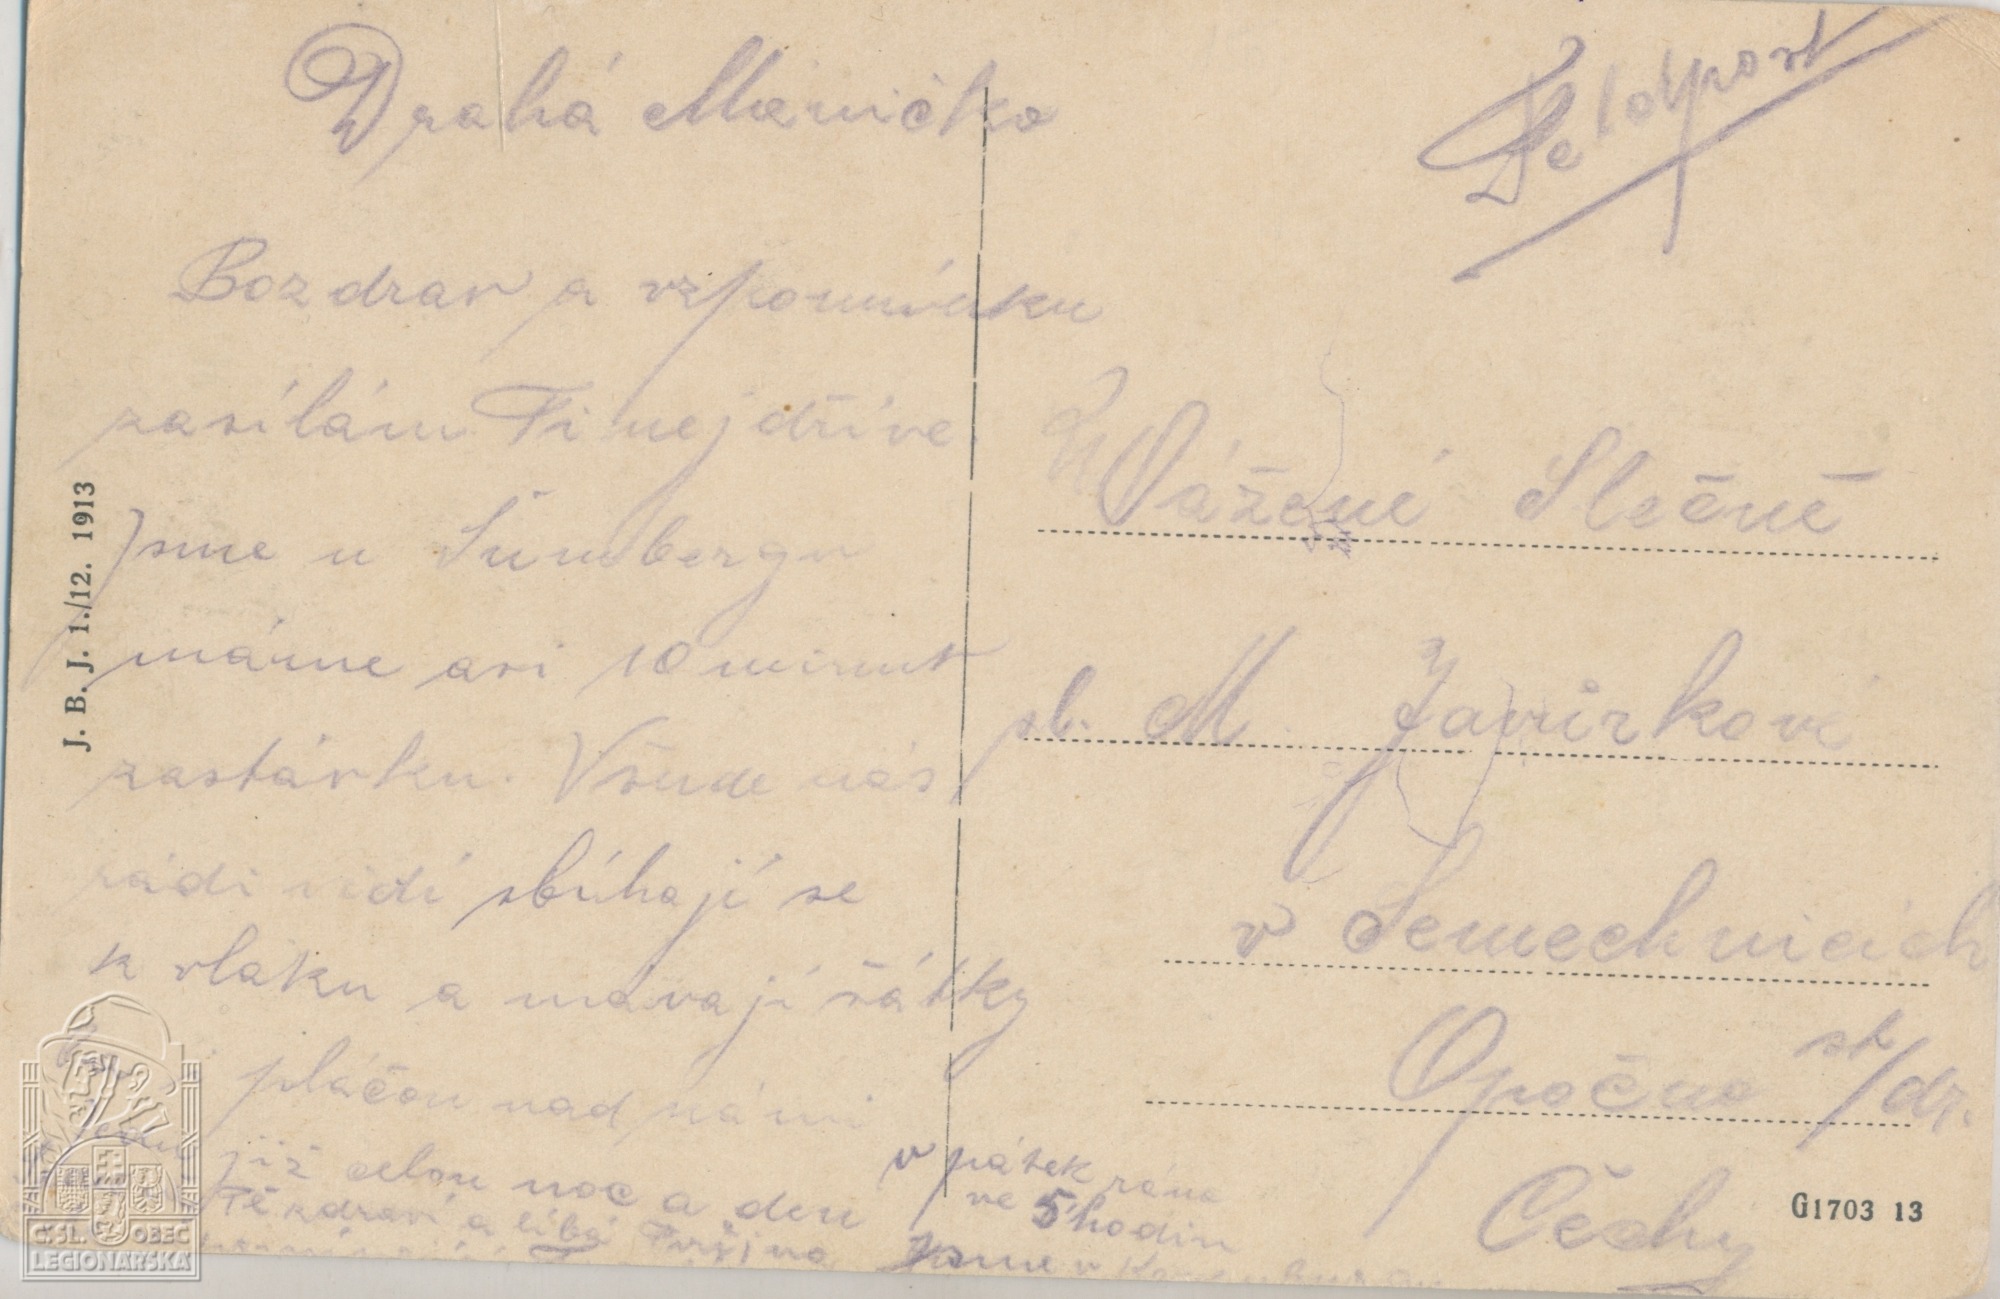 Drahá Mařničko
Pozdrav a vzpomínku
zasílám Ti nejdříve
Jsme u Šumbergu
máme asi 10 minut
zastávku. Všude nás
rádi vidí sbíhají se
k vlaku a mávají šátky
pláčou nad námi
již celou noc a den
Tě zdraví a líbá
v pátek ráno
ve 5 hodin
Jsme v
Feldpost
Vážené Slečně
sl. M. Javůrkové
v Semechnicích
Opočno st/dr.
Čechy
J. B. J. 1./12. 1913
G1703 13
ČSL. OBEC
LEGIONÁŘSKÁ